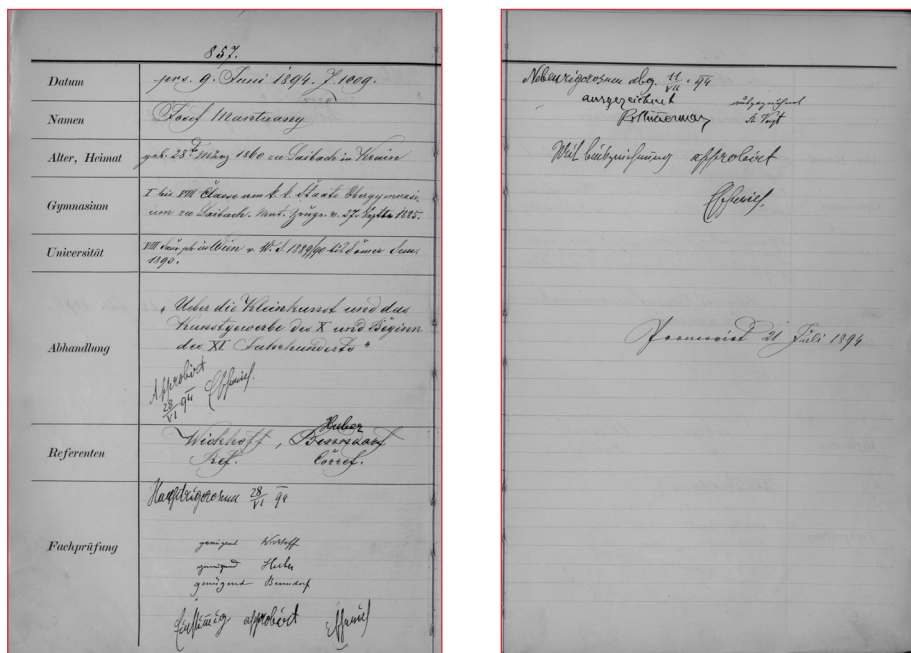 857.
Datum prs. 9. Juni 1894. Z. 1009.
Namen Josef Mantuany
Alter, Heimat geb. 28ten März 1860 zu Laibach in Krain
Gymnasium I bis VIII Classe am k. k. Staats Obergymnasi-
um zu Laibach. Mat. Zeugn. v. 27. 1885.
Universität VIII Sem. ph. in Wien v. W. S. 1889/90 bis Sem.
1890.
Abhandlung „Ueber die Kleinkunst und das
Kunstgewerbe des X und Beginn
des XI Jahrhunderts"
Approbirt
28/VI 94
Huber
Referenten Wickhoff, Benndorf
Ref. Corref.
Hauptrigorosum 28/VI 94
Fachprüfung genügend Wickhoff
genügend Huber
genügend Benndorf
Einstimmig approbirt
Nebenrigorosum abg. 11/VII 94
ausgezeichnet ausgezeichnet
R Zimmermann Th Vogt
Mit Auszeichnung approbirt
Promovirt 21 Juli 1894